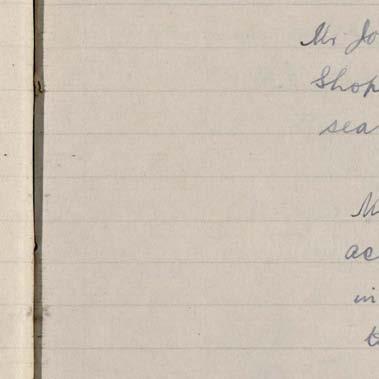 Mr Jo
Shop
sea
M
ac
in